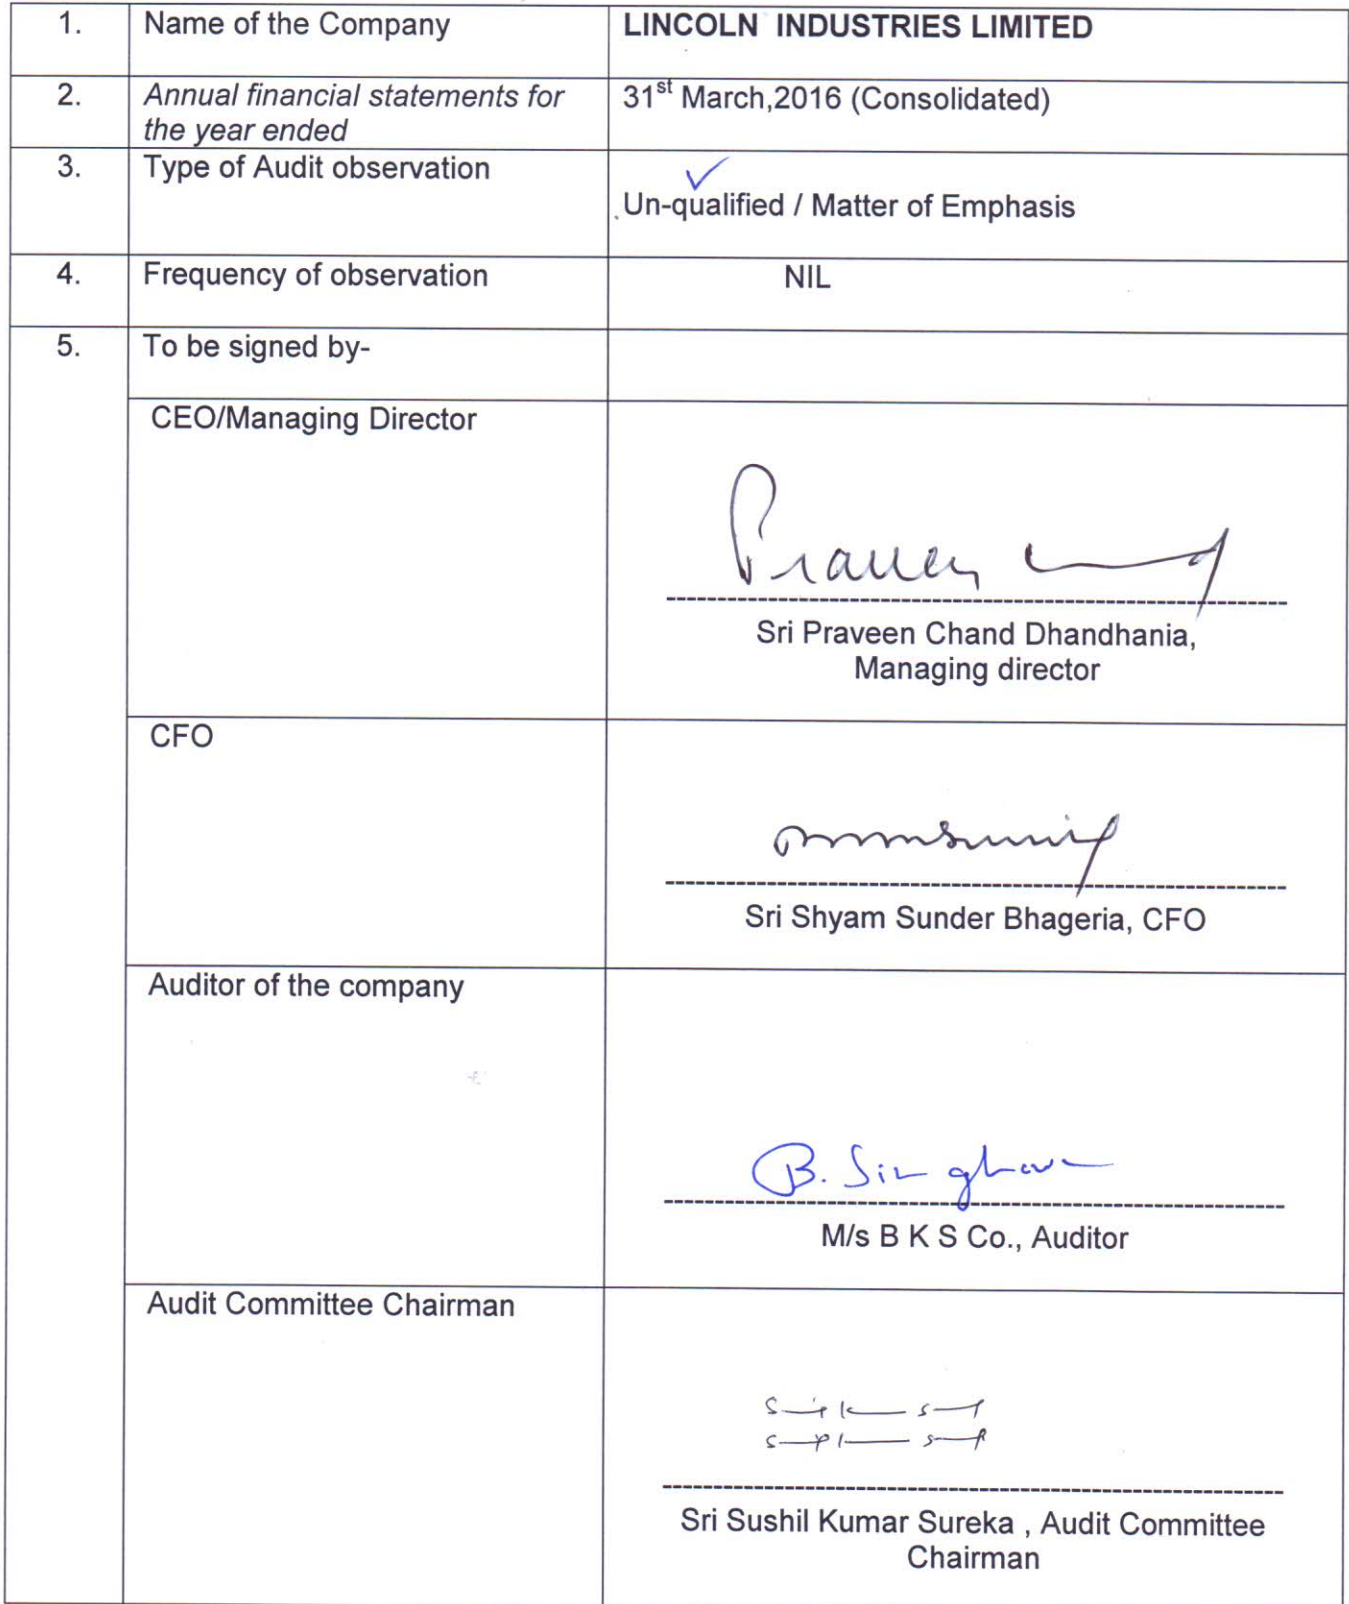 1. Name of the Company LINCOLN INDUSTRIES LIMITED
2. Annual financial statements for 31st March,2016 (Consolidated)
the year ended
3. Type of Audit observation
✓
Un-qualified / Matter of Emphasis
4. Frequency of observation NIL
5. To be signed by-
CEO/Managing Director
Praveen
Sri Praveen Chand Dhandhania,
Managing director
CFO
Sri Shyam Sunder Bhageria, CFO
Auditor of the company
B. Singhania
M/s B K S Co., Auditor
Audit Committee Chairman
Sri Sushil Kumar Sureka , Audit Committee
Chairman